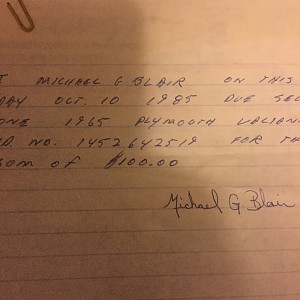 I MICHAEL G BLAIR ON THIS
DAY OCT. 10 1985 DUE SEL
ONE 1965 PLYMOUTH VALIAN
I.D. NO. 1452642519 FOR TH
SUM OF $100.00
Michael G Blair